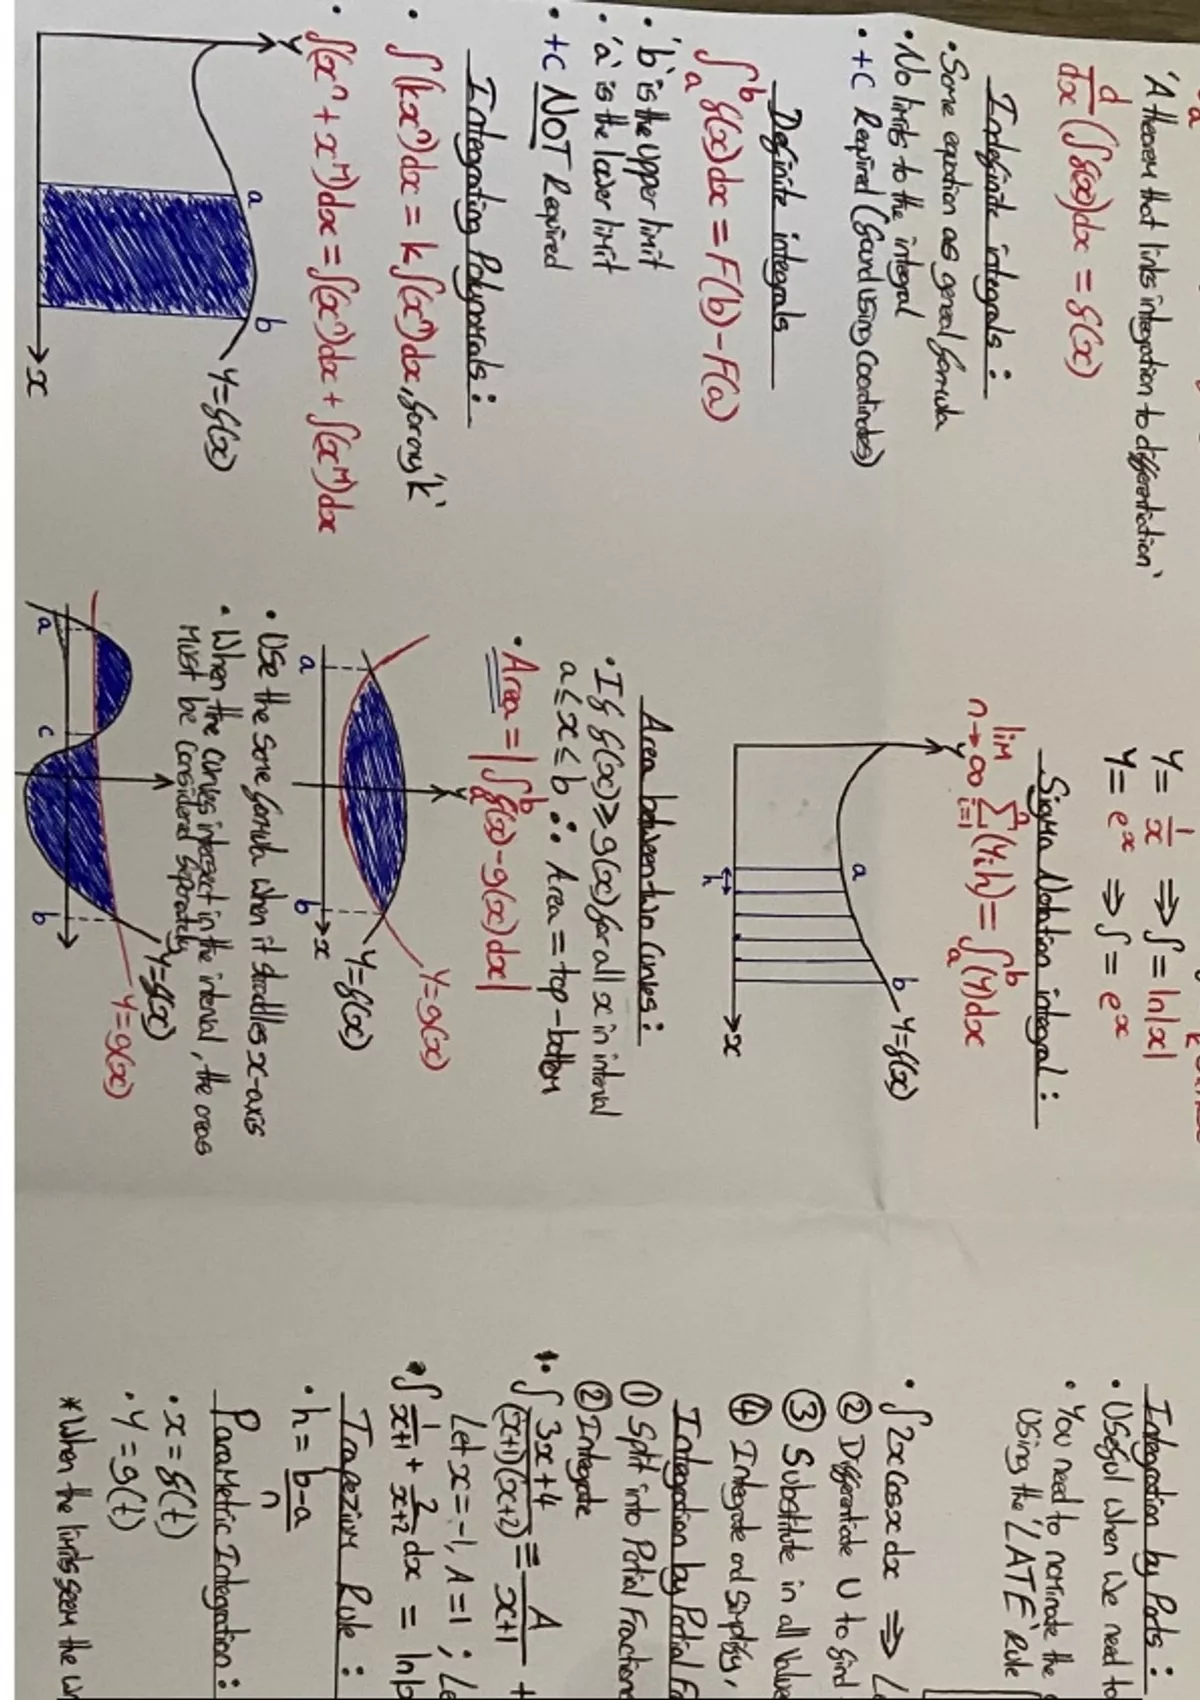 'A theorem that links integration to differentiation'
d/dx (∫f(x)dx = f(x)
Indefinite integrals:
• Same equation as general formula
• No limits to the integral
• +C Required (found using coordinates)
Definite integrals
∫ₐᵇ f(x)dx = F(b) - F(a)
• 'b' is the upper limit
• 'a' is the lower limit
• +C NOT Required
Integrating Polynomials:
• ∫(kxⁿ)dx = k∫(xⁿ)dx, for any 'k'
• ∫(xⁿ + xᵐ)dx = ∫(xⁿ)dx + ∫(xᵐ)dx
y
a
b
y=f(x)
x
y = 1/x ⇒ ∫ = ln|x|
y = eˣ ⇒ ∫ = eˣ
Sigma Notation integral:
lim n→∞ Σ i=1 n (yᵢh) = ∫ₐᵇ(y)dx
y
a
b
y=f(x)
h
x
Area between two Curves:
• If f(x) ≥ g(x) for all x in interval
a ≤ x ≤ b ∴ Area = top - bottom
• Area = |∫ₐᵇ f(x) - g(x) dx|
y
y=g(x)
y=f(x)
a
b
x
• Use the same formula when it straddles x-axis
• When the curves intersect in the interval, the areas
must be considered separately
a
c
b
y=f(x)
y=g(x)
Integration by Parts:
• Useful when we need to
• You need to nominate the
Using the 'LATE' Rule
• ∫2x cosx dx ⇒
② Differentiate U to find
③ Substitute in all
④ Integrate and simplify,
Integration by Partial
① Split into Partial Fraction
② Integrate
• ∫ 3x+4/(x+1)(x+2) ≡ A/x+1 +
Let x = -1, A = 1;
• ∫ 1/x+1 + 2/x+2 dx = ln
Trapezium Rule:
• h = b-a/n
Parametric Integration:
• x = f(t)
• y = g(t)
* When the limits seem the